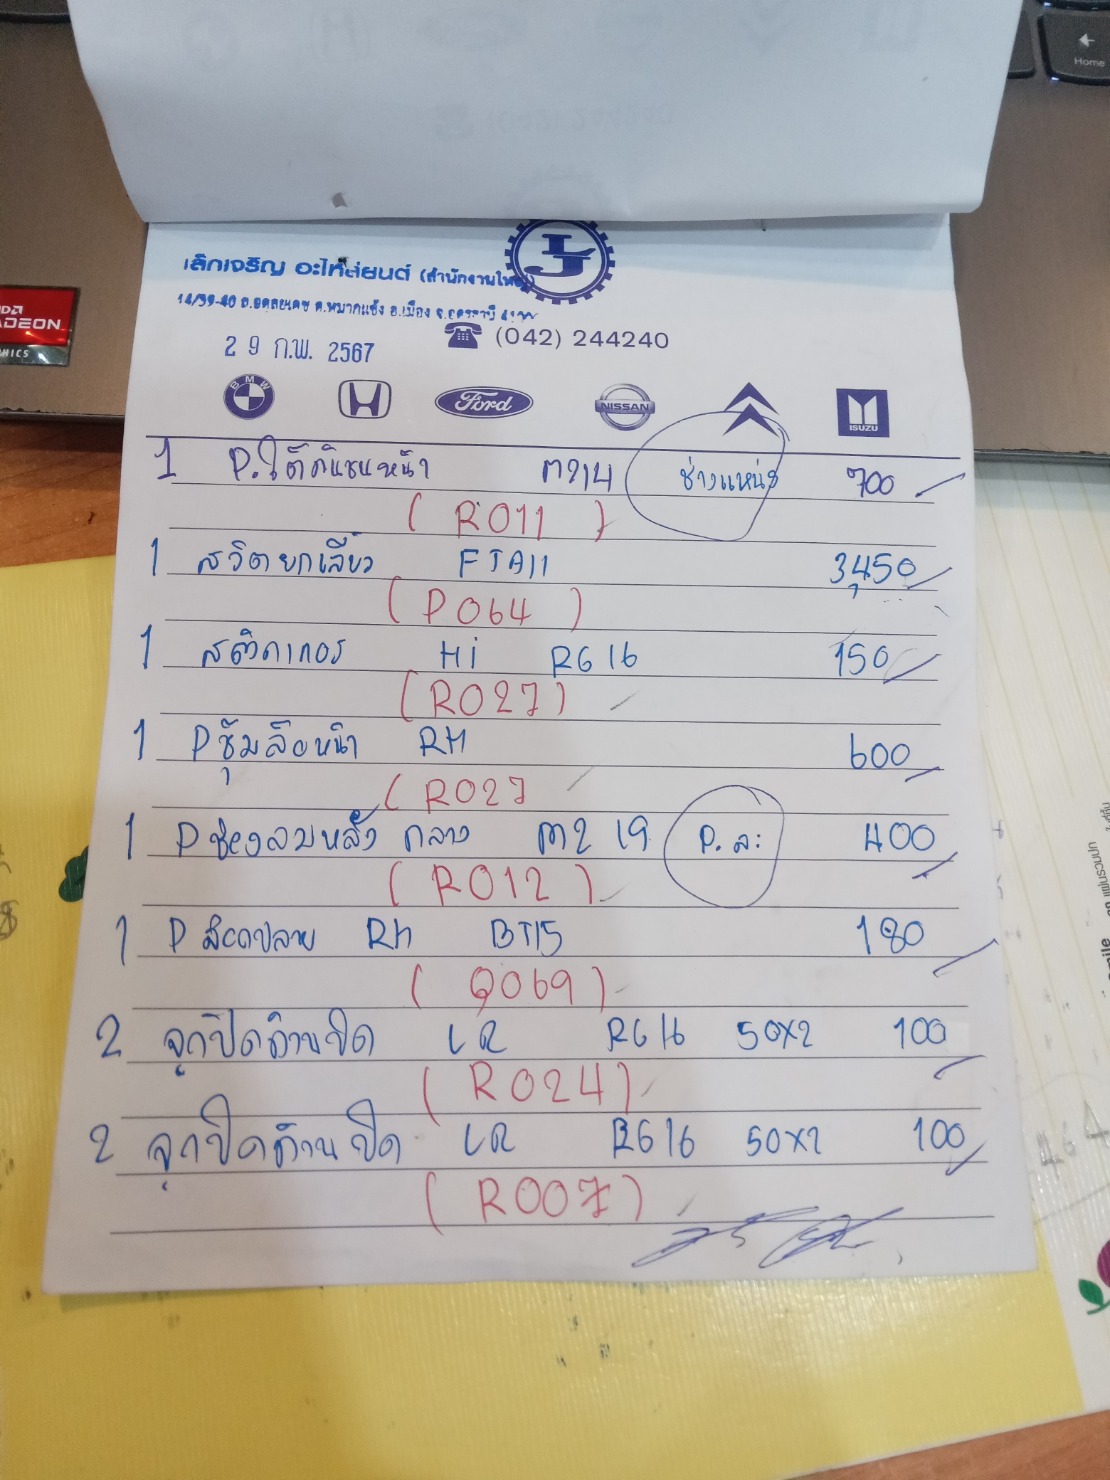 Home
RADEON
เล็กเจริญ อะไหล่ยนต์ (สำนักงานใหญ่)
LJ
14/39-40 ถ.อดุลยเดช ต.หมากแข้ง อ.เมือง จ.อุดรธานี
29 ก.พ. 2567 (042) 244240
BMW H Ford NISSAN ISUZU
1 P.ใต้กันชนหน้า M214 ช่างแหน่ง 700
(R011)
1 สวิตยกเลี้ยว FTA11 3,450
(P064)
1 สติกเกอร์ Hi RG16 150
(R027)
1 P ซุ้มล้อหน้า RH 600
(R027
1 P ช่องลมหลัง กลาง M219 P.ละ 400
(R012)
1 P RH BT15 180
(Q069)
2 จุกปิดก้านปัด LR RG16 50x2 100
(R024)
2 จุกปิดก้านปัด LR RG16 50x2 100
(R007)